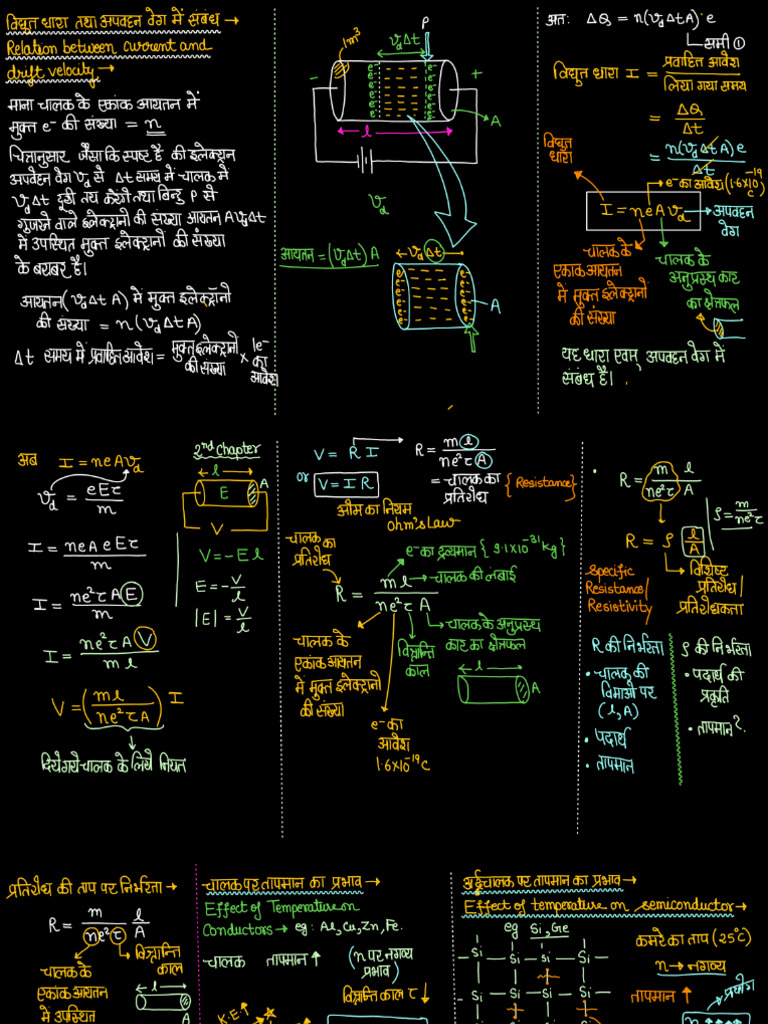 विद्युत धारा तथा अपवहन वेग में संबंध →
Relation between current and
drift velocity →
माना चालक के एकांक आयतन में
मुक्त e⁻ की संख्या = n
चित्रानुसार जैसा कि स्पष्ट है, की इलेक्ट्रान
अपवहन वेग Vd से Δt समय में चालक में
VdΔt दूरी तय करेंगे तथा बिन्दु P से
गुजरने वाले इलेक्ट्रानों की संख्या आयतन AVdΔt
में उपस्थित मुक्त इलेक्ट्रानों की संख्या
के बराबर है।
आयतन (VdΔt A) में मुक्त इलेक्ट्रॉनों
की संख्या = n(VdΔtA)
Δt समय में प्रवाहित आवेश = मुक्त इलेक्ट्रानों की संख्या × 1e⁻ का आवेश
1m³
VdΔt
P
- +
A
l
Vd
आयतन = (VdΔt) A
VdΔt
A
अतः ΔQ = n(VdΔtA) e
समी ①
विद्युत धारा I = प्रवाहित आवेश / लिया गया समय
= ΔQ / Δt
= n(VdΔtA) e / Δt
विद्युत धारा
e⁻ का आवेश (1.6×10⁻¹⁹ C)
I = neAVd → अपवहन वेग
चालक के एकांक आयतन में मुक्त इलेक्ट्रानों की संख्या
चालक के अनुप्रस्थ काट का क्षेत्रफल
यह धारा एवम् अपवहन वेग में
संबंध है।
अब I = neAVd
Vd = eEτ / m
I = neA eEτ / m
I = ne²τA E / m
I = ne²τA V / ml
V = (ml / ne²τA) I
दिये गये चालक के लिये नियत
2nd chapter
l
E A
V
V = -El
E = -V/l
|E| = V/l
V = R I R = ml / ne²τA
or V = I R = चालक का प्रतिरोध {Resistance}
ओम का नियम
Ohm's Law
चालक का प्रतिरोध
e⁻ का द्रव्यमान {9.1×10⁻³¹ kg}
चालक की लंबाई
R = ml / ne²τA
चालक के अनुप्रस्थ काट का क्षेत्रफल
विश्रान्ति काल
चालक के एकांक आयतन में मुक्त इलेक्ट्रानों की संख्या
l
A
e⁻ का आवेश
1.6×10⁻¹⁹ C
R = m/ne²τ l/A
ρ = m/ne²τ
R = ρ l/A
Specific Resistance/ Resistivity
विशिष्ट प्रतिरोध/ प्रतिरोधकता
R की निर्भरता
• चालक की विमाओं पर (l, A)
• पदार्थ
• तापमान
ρ की निर्भरता
• पदार्थ की प्रकृति
• तापमान?
प्रतिरोध की ताप पर निर्भरता →
R = m/ne²τ l/A
चालक के एकांक आयतन में उपस्थित
विश्रान्ति काल
l
A
चालक पर तापमान का प्रभाव →
Effect of Temperature on
Conductors → eg: Al, Cu, Zn, Fe.
चालक तापमान ↑ (n पर नगण्य प्रभाव)
विश्रान्ति काल τ ↓
K.E ↑
अर्द्धचालक पर तापमान का प्रभाव →
Effect of temperature on semiconductor →
eg Si, Ge
Si Si Si Si
Si Si Si Si
कमरे का ताप (25°C)
n → नगण्य
तापमान ↑